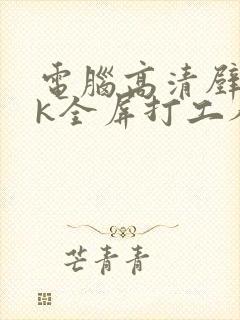 電腦高清壁
K全屏打工
芒青青